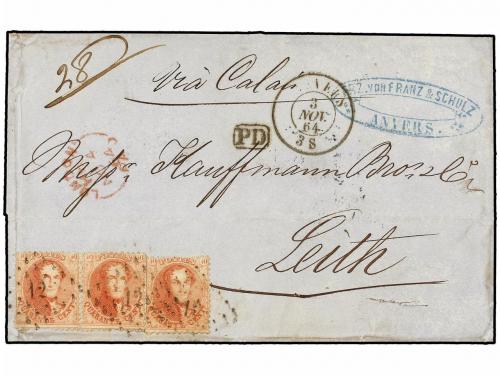 28
Via Calais
ANVERS
3
NOV.
64
3 S
VON FRANZ & SCHULZ
ANVERS.
PD
Messrs Kauffmann Bros & Co
Leith
12 12 12